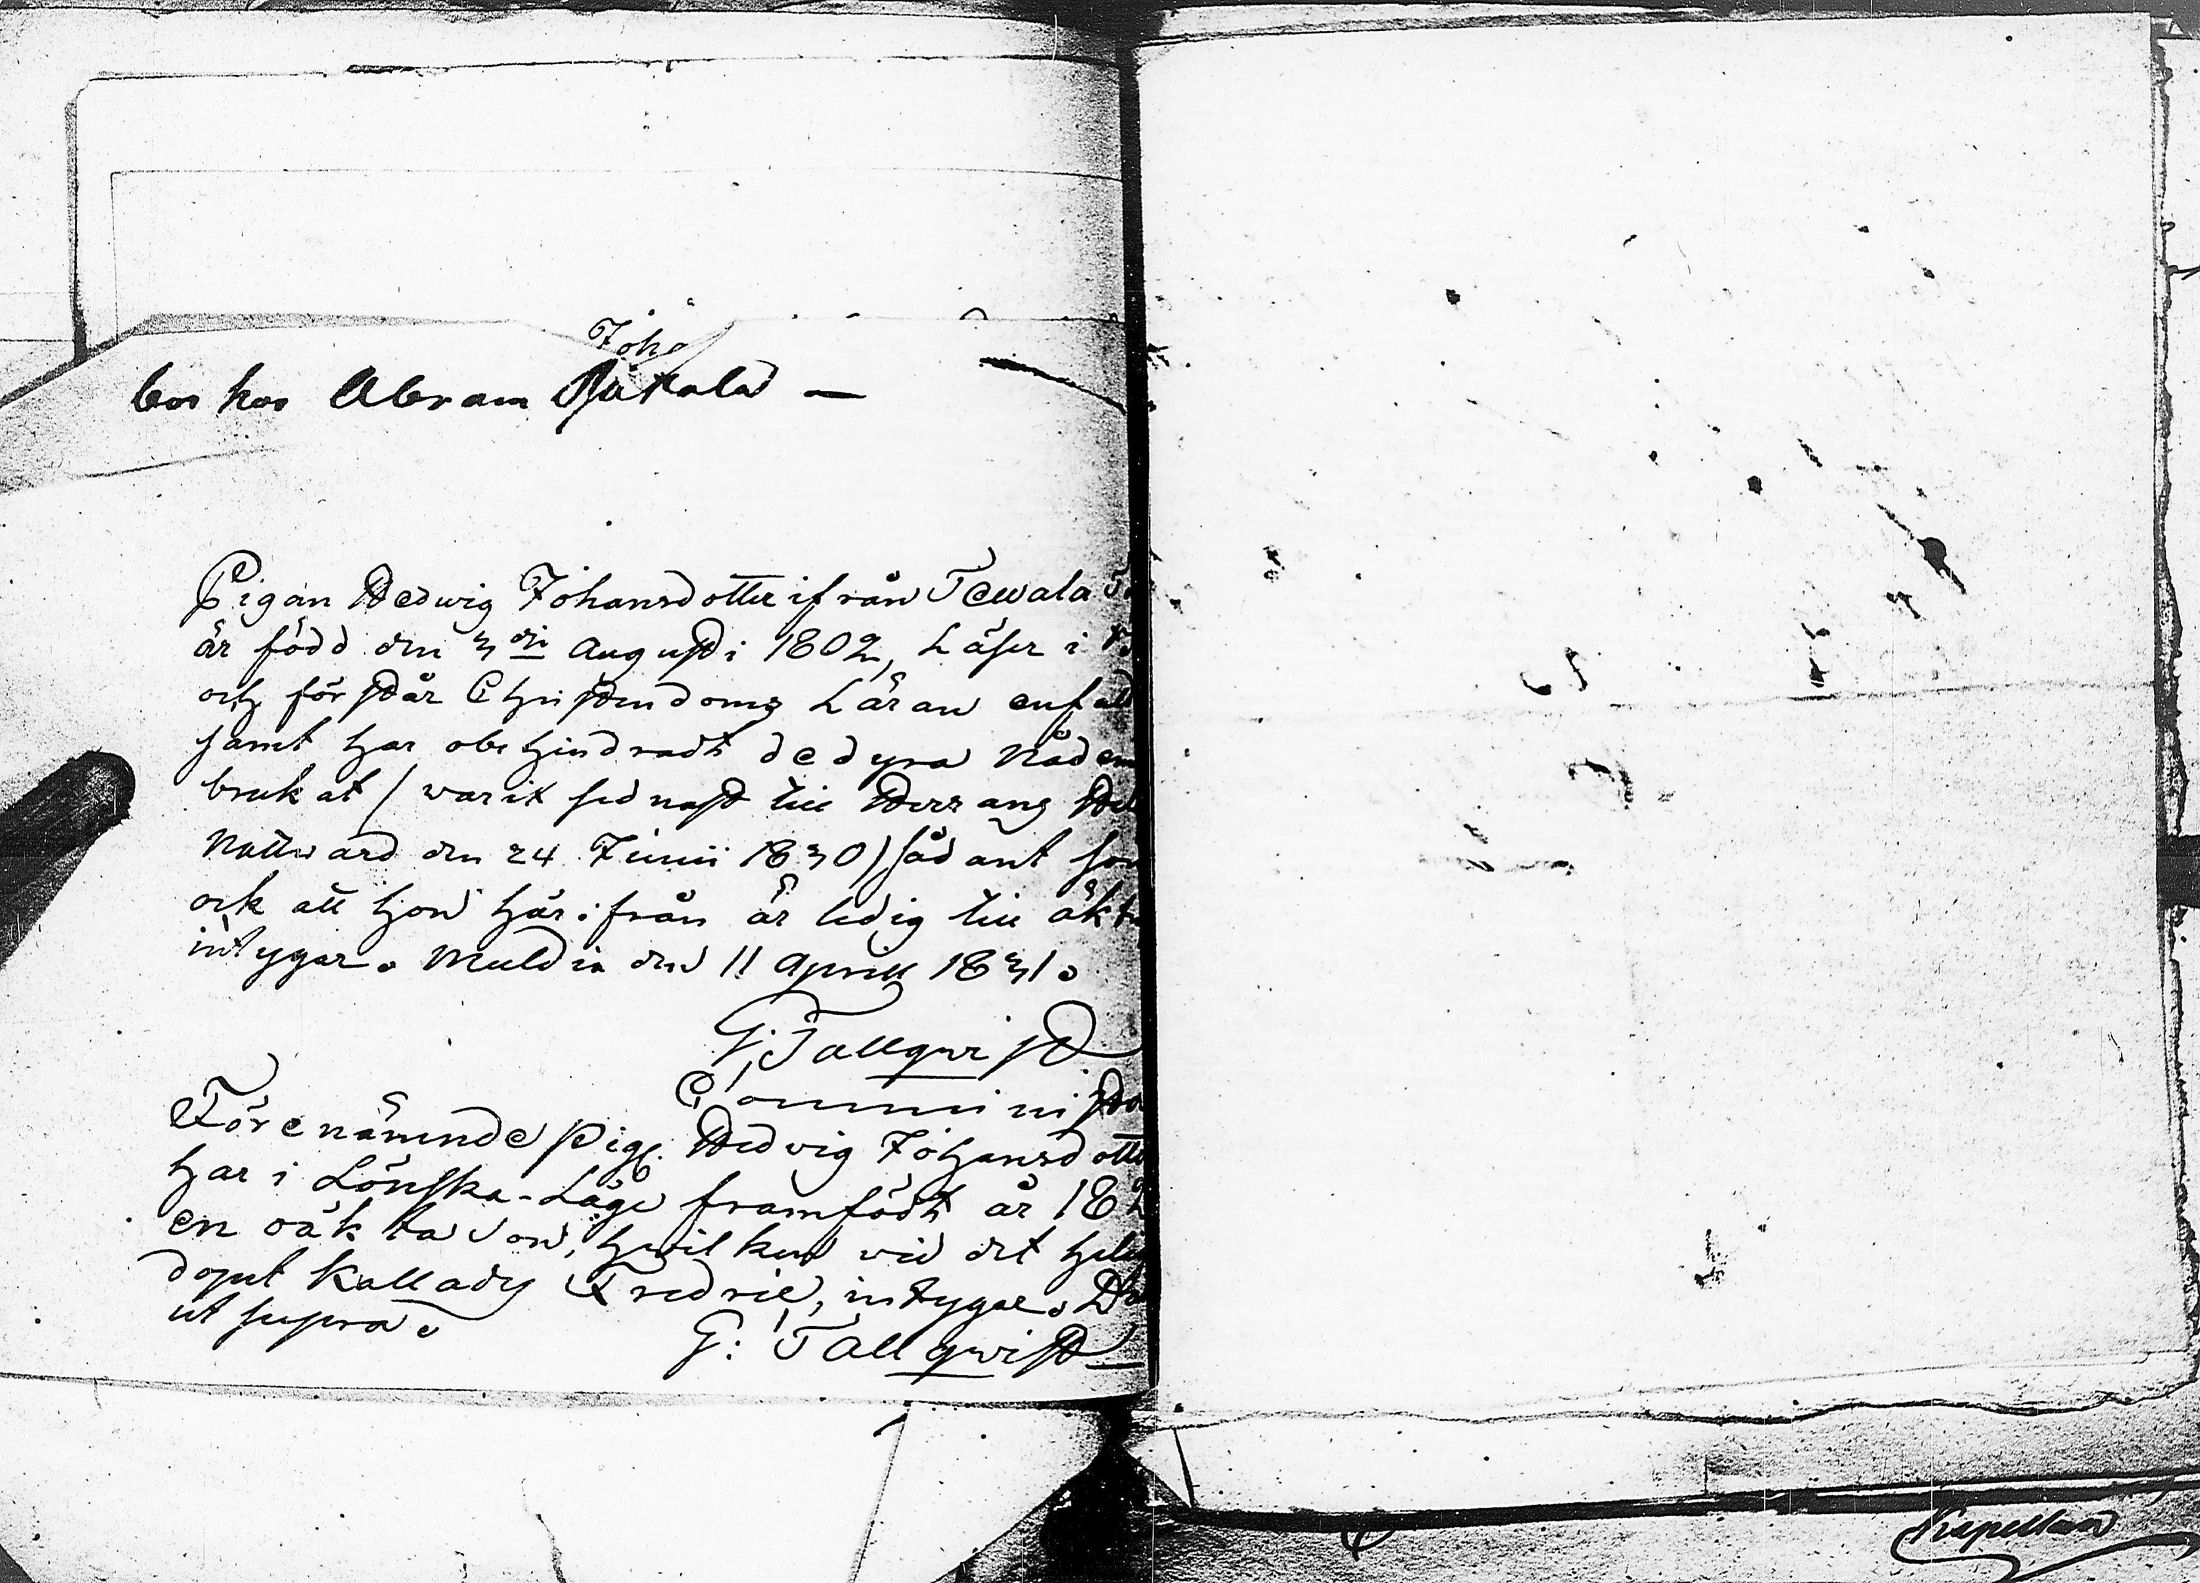 Joha
bor hos Abram
Pigan Hedwig Johansdotter ifrån Tewala
är född den 3die Augusti 1802, Läser i
och förstår Christendoms Läran enfald
samt har obehindradt de dyra Nådem
brukat / warit sednast till Herrans Hel
Nattward den 24 Junii 1830) sådant som
ock att hon härifrån är ledig till äkta
intygar. Muldia den 11 Aprill 1831.
G: Tallqwist
Comminista
Förenämnde Pig. Hedvig Johansdotte
har i Lönska-Läge framfödt år 182
en oäkta Son, hvilken vid det helig
dopet Kallads Fredric, intygar. Da
ut supra.
G: Tallqwist
Kapellan